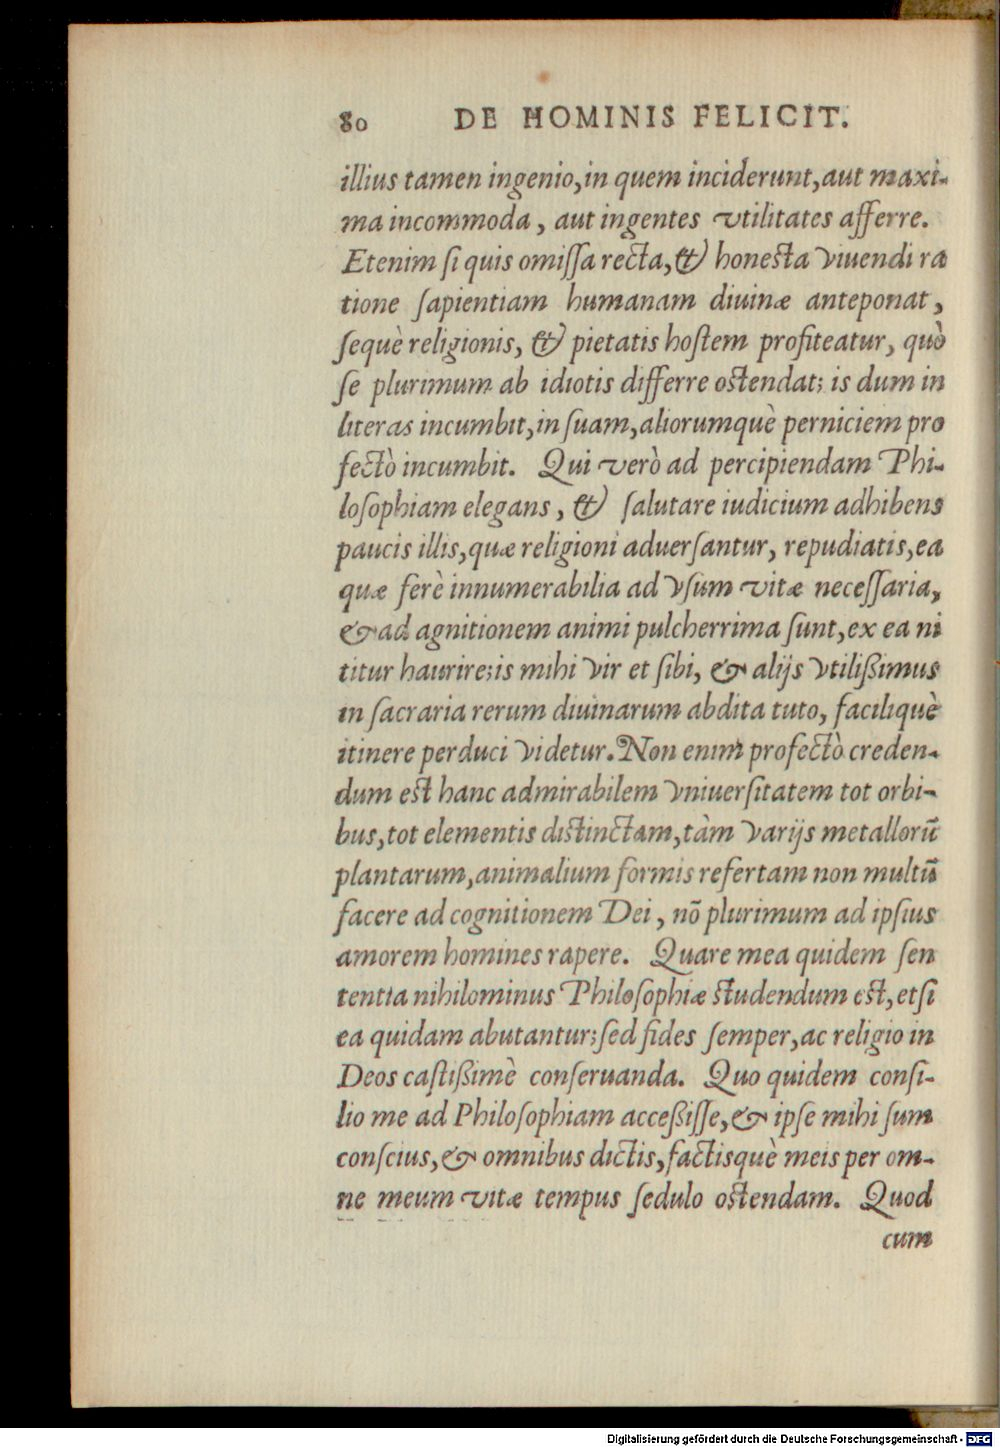 80 DE HOMINIS FELICIT.
illius tamen ingenio, in quem inciderunt, aut maxi-
ma incommoda, aut ingentes vtilitates afferre.
Etenim ſi quis omiſſa recta, & honesta viuendi ra
tione ſapientiam humanam diuinæ anteponat,
ſequè religionis, & pietatis hoſtem profiteatur, quò
ſe plurimum ab idiotis differre oſtendat; is dum in
literas incumbit, in ſuam, aliorumquè perniciem pro
fectò incumbit. Qui verò ad percipiendam Phi-
loſophiam elegans, & ſalutare iudicium adhibens
paucis illis, quæ religioni aduerſantur, repudiatis, ea
quæ ferè innumerabilia ad vſum vitæ neceſſaria,
& ad agnitionem animi pulcherrima ſunt, ex ea ni
titur haurire; is mihi vir et ſibi, & alijs vtilißimus
in ſacraria rerum diuinarum abdita tuto, faciliquè
itinere perduci videtur. Non enim profectò creden-
dum est hanc admirabilem vniuerſitatem tot orbi-
bus, tot elementis diſtinctam, tàm varijs metallorū
plantarum, animalium formis refertam non multū
facere ad cognitionem Dei, nō plurimum ad ipſius
amorem homines rapere. Quare mea quidem ſen
tentia nihilominus Philoſophiæ ſtudendum est, etſi
ea quidam abutantur; ſed fides ſemper, ac religio in
Deos caſtißimè conſeruanda. Quo quidem conſi-
lio me ad Philoſophiam acceßiſſe, & ipſe mihi ſum
conſcius, & omnibus dictis, factisquè meis per om-
ne meum vitæ tempus ſedulo oſtendam. Quod
cum
Digitalisierung gefördert durch die Deutsche Forschungsgemeinschaft - DFG